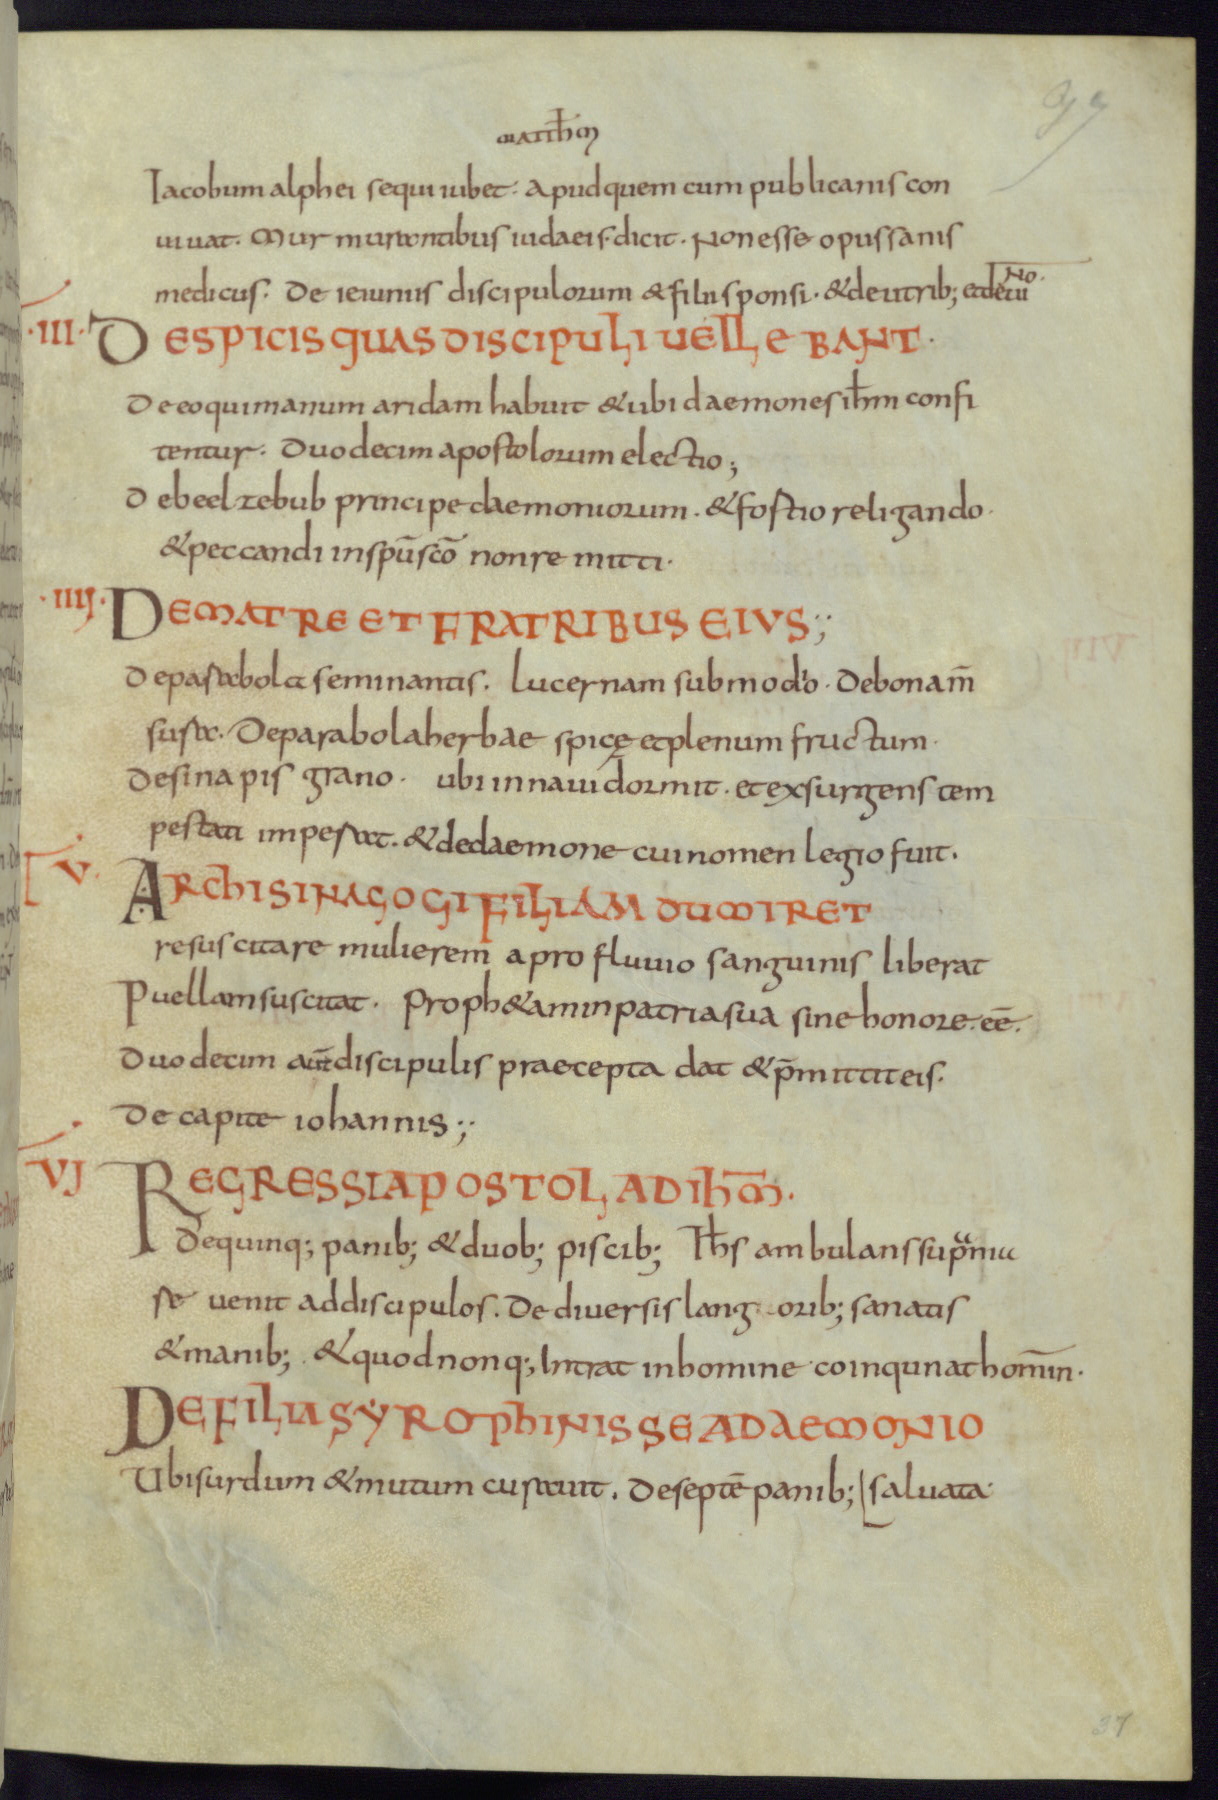 matth̄m
Iacobum alphei sequi iubet· apud quem cum publicanis con
uiuat· Murmurantibus iudaeis dicit· Non esse opus sanis
medicus· De ieiuniis discipulorum & filii sponsi· & de utrib; et de uino·
·III· DE SPICIS QUAS DISCIPULI UELLEBANT·
De eo qui manum aridam habuit & ubi daemones ih̄m confi
tentur· Duodecim apostolorum electio;
De beelzebub principe daemoniorum· & fostio religando·
& peccandi in sp̄u sc̄o non remitti·
·IIIJ· DE MATRE ET FRATRIBUS EIUS;;
De parabola seminantis· lucernam sub modio· De bona m̄
sura· De parabola herbae spicę et plenum fructum·
De sinapis grano· ubi in naui dormit· et exsurgens tem
pestati imperat· & de daemone cui nomen legio fuit·
V· ARCHISINAGOGI FILIAM DUM IRET
resuscitare mulierem a profluuio sanguinis liberat
Puellam suscitat· Proph&am in patria sua sine honore· ēe·
Duodecim aūt discipulis praecepta dat & p̄mittit eis·
De capite iohannis;;
VJ REGRESSI APOSTOLI AD IH̄M·
De quinq; panib; & duob; piscib; Ih̄s ambulans sup̄ma
re uenit ad discipulos· De diuersis langorib; sanatis
& manib; & quod non q; Intrat in homine coinqunat homīn·
DE FILIA SYROPHINISSE A DAEMONIO
Ubi surdum & mutum curauit· De septē panib; saluata·
37